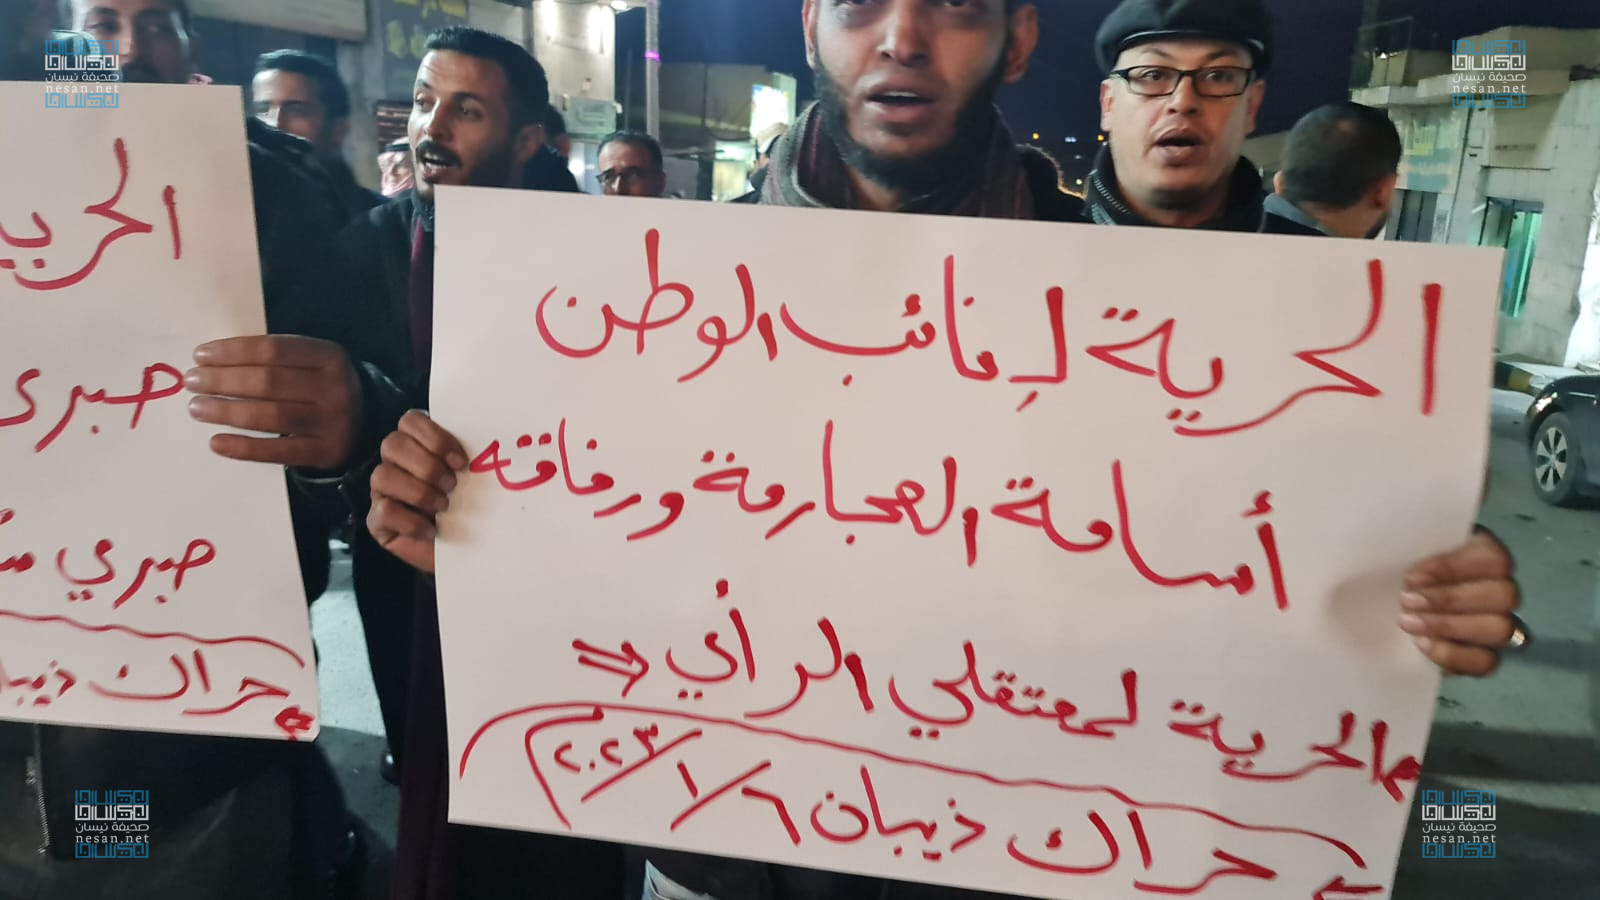 الحرية لـ نائب الوطن
أسامة العجارمة ورفاقه
الحرية لمعتقلي الرأي
حراك ذيبان ٦/١/٢٠٢٣م
صبري
صبري
حراك
صحيفة نيسان
nesan.net
صحيفة نيسان
nesan.net
صحيفة نيسان
nesan.net
صحيفة نيسان
nesan.net